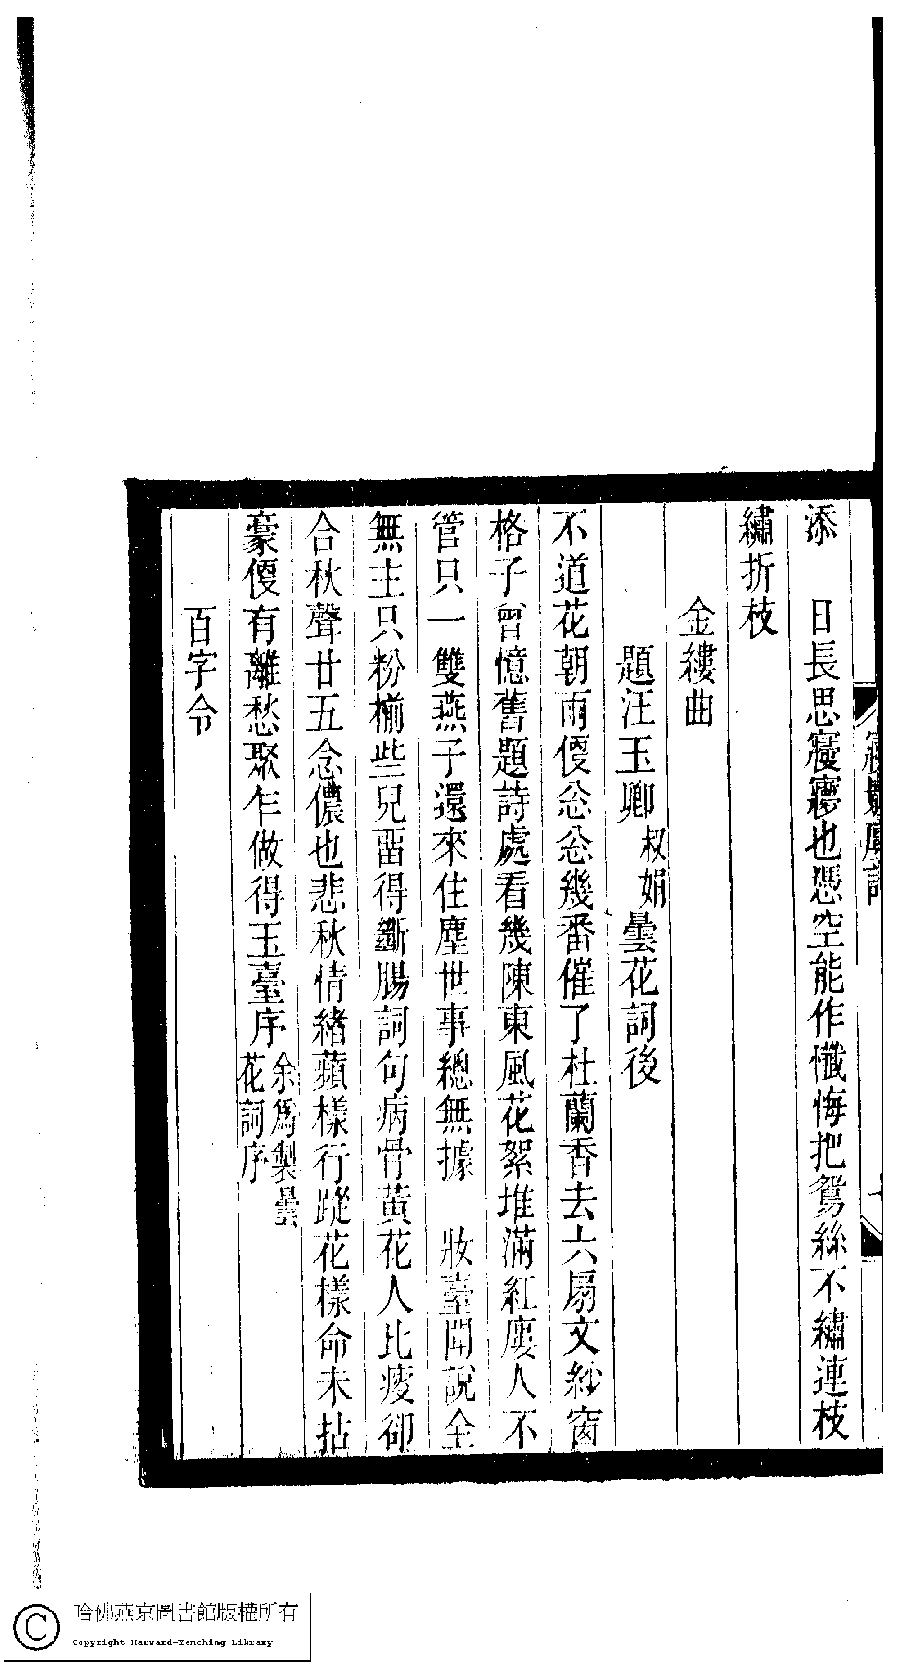 添　日長思寢寢也憑空能作懺悔把鴛絲不繡連枝
繡折枝
金縷曲
題汪玉卿叔娟曇花詞後
不道花朝雨偠忩忩幾番催了杜蘭香去六扇文紗窗
格子曾憶舊題詩處看幾陳東風花絮堆滿紅廔人不
管只一雙燕子還來住塵世事總無據　妝臺聞說全
無主只粉槅些兒畱得斷腸詞句病骨黃花人比瘦卻
合秋聲廿五念儂也悲秋情緒蘋樣行蹤花樣命未拈
豪偠有離愁聚乍做得玉臺序余爲製曇花詞序
百字令
哈佛燕京圖書館版權所有
Copyright Harvard-Yenching Library